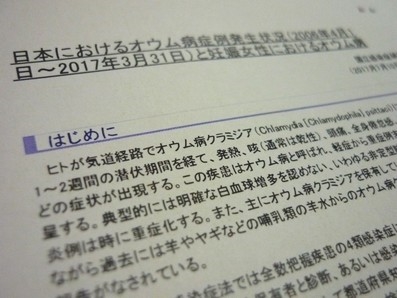 日本におけるオウム病症例発生状況(2006年4月1
日～2017年3月31日)と妊娠女性におけるオウム病
(2017年7月1
はじめに
ヒトが気道経路でオウム病クラミジア(Chlamydia [Chlamydophila] psittaci)
1～2週間の潜伏期間を経て、発熱、咳(通常は乾性)、頭痛、全身倦怠感
どの症状が出現する。この疾患はオウム病と呼ばれ、軽症から重症例
呈する。典型的には明確な白血球増多を認めない、いわゆる非定型
炎例は時に重症化する。また、主にオウム病クラミジアを保有して
ながら過去には羊やヤギなどの哺乳類の羊水からのオウム
報告がなされている。
感染症法では全数把握疾患の4類感染症に
有者と診断、あるいは感
都道府県知